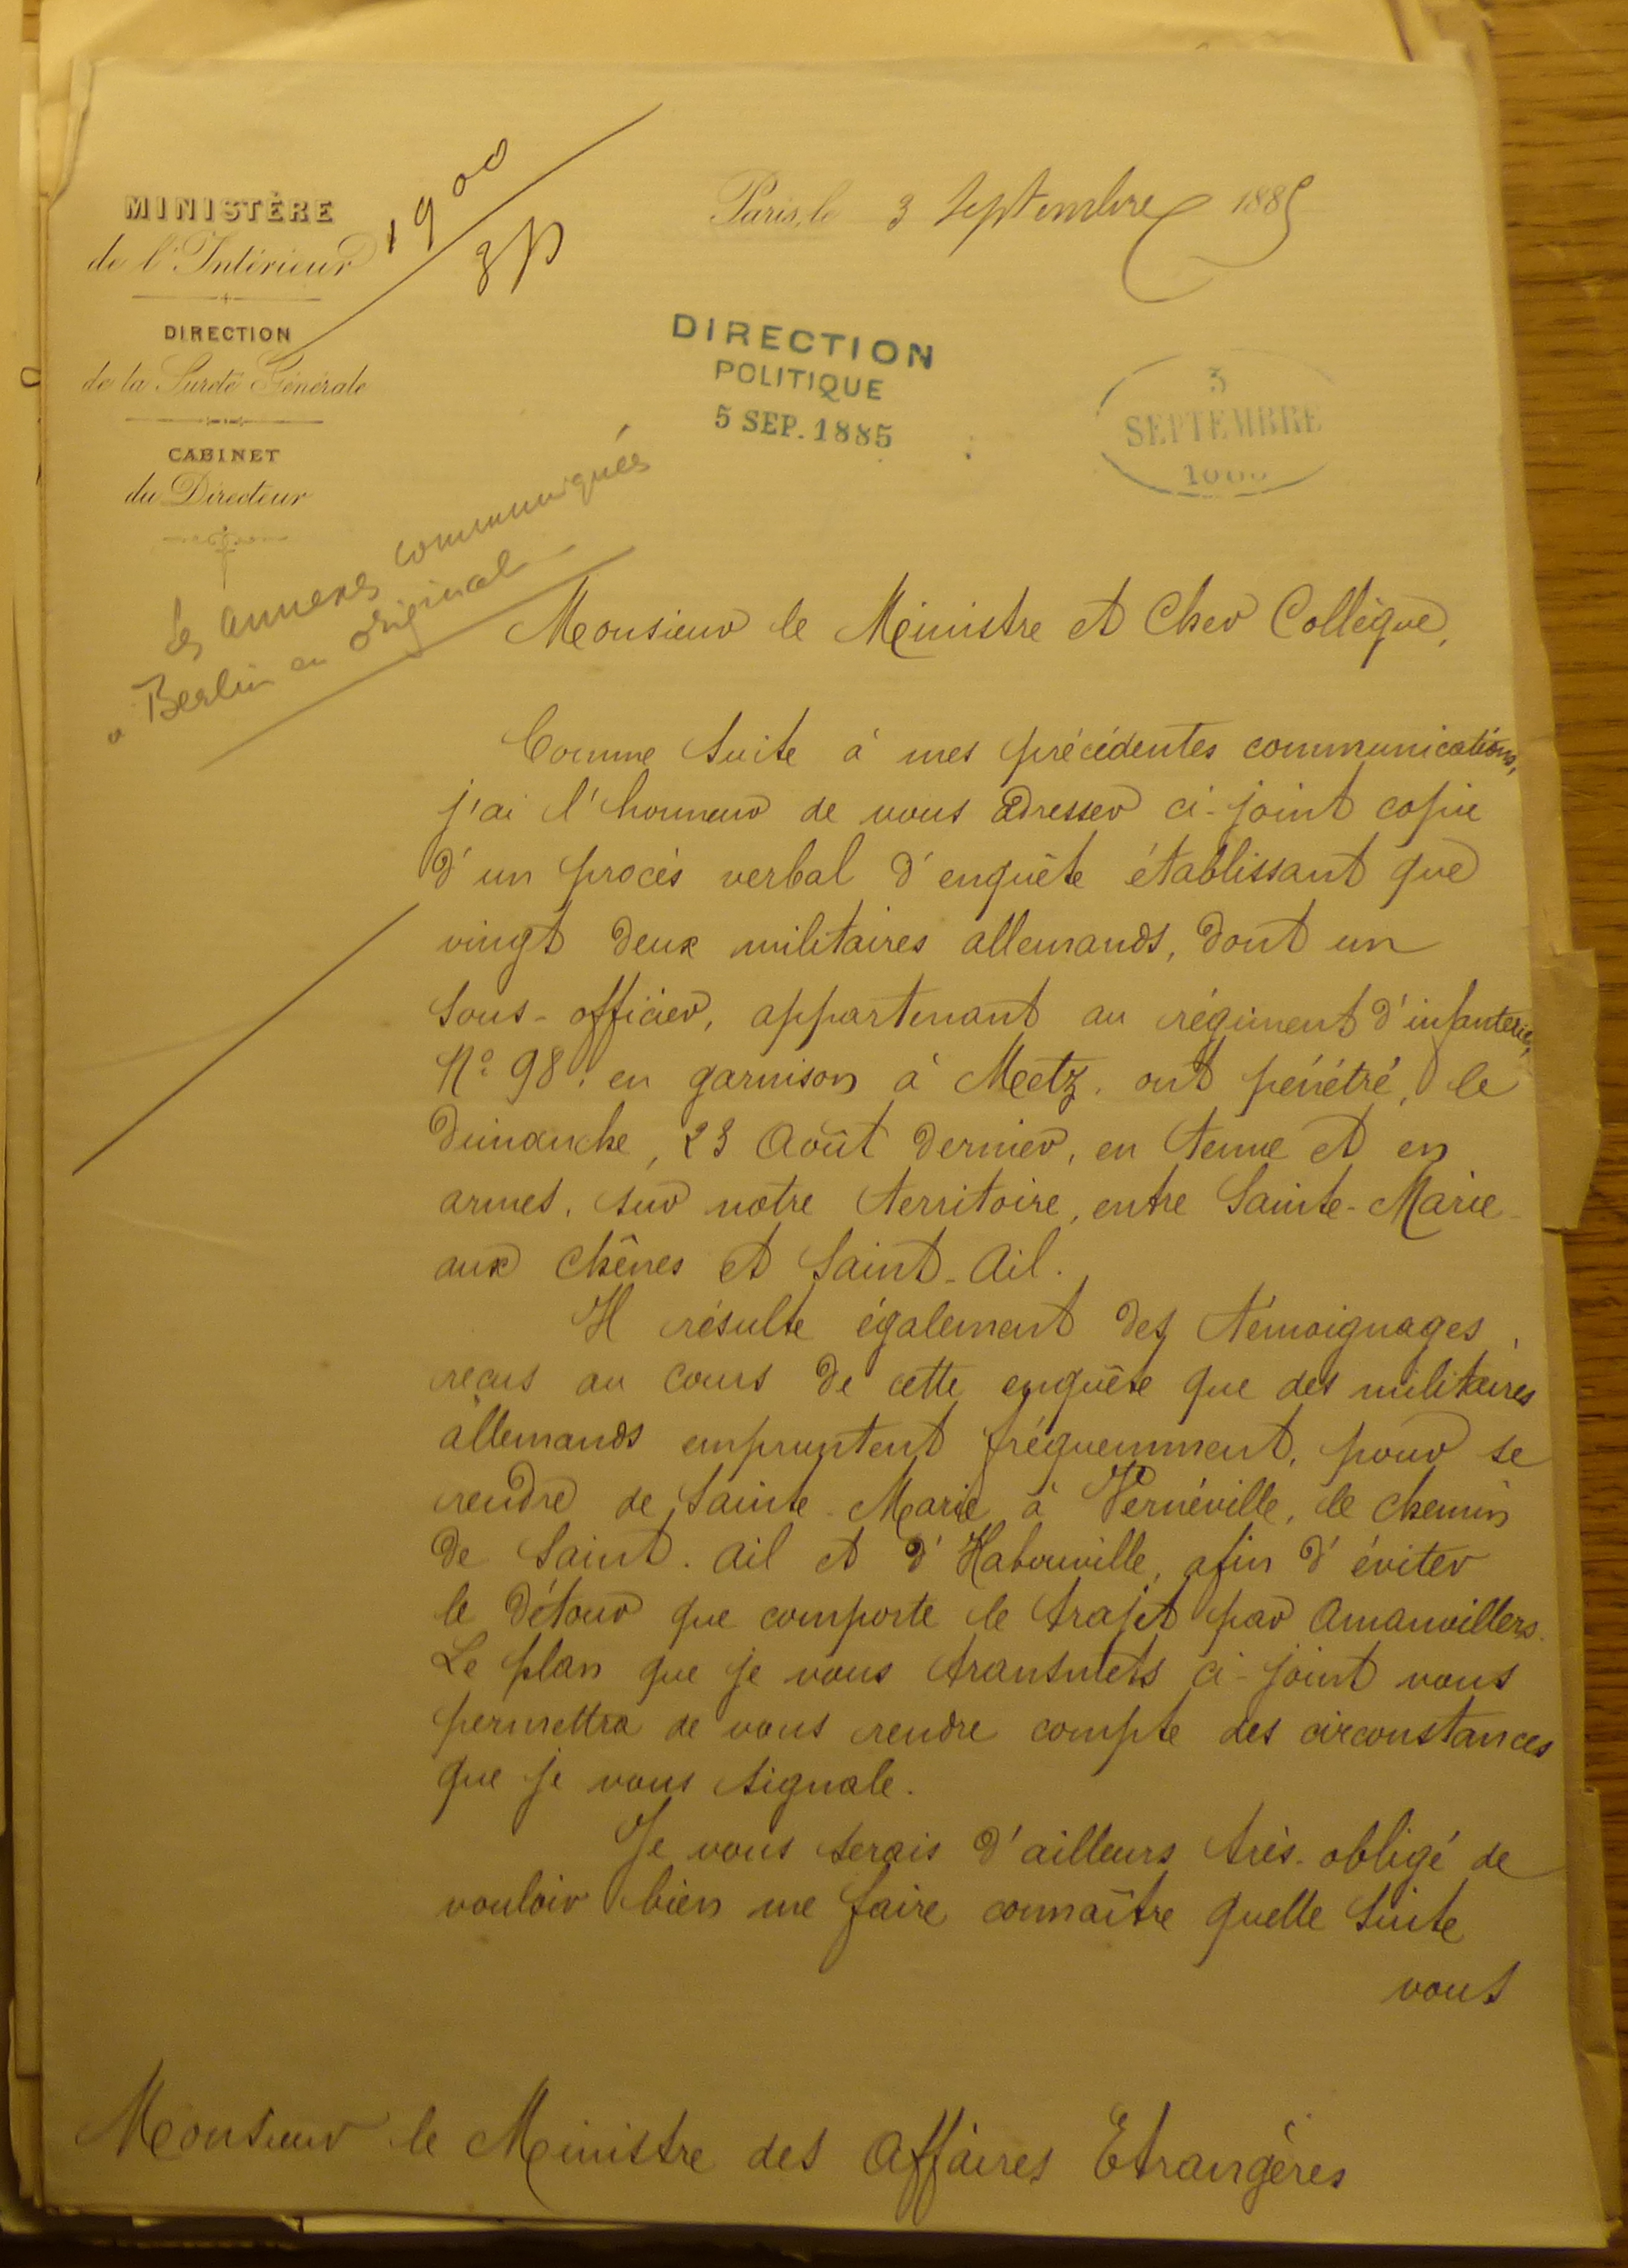 MINISTÈRE
de l'Intérieur
DIRECTION
de la Sureté Générale
CABINET
du Directeur
1900
3P
Paris, le 3 Septembre 1885
DIRECTION
POLITIQUE
5 SEP. 1885
3
SEPTEMBRE
Les annexes communiqués
a Berlin en original
Monsieur le Ministre et Cher Collègue,
Comme suite à mes précédentes communications,
j'ai l'honneur de vous adresser ci-joint copie
d'un procès verbal d'enquête établissant que
vingt deux militaires allemands, dont un
sous-officier, appartenant au régiment d'infanterie,
N° 98, en garnison à Metz, ont pénétré, le
Dimanche, 23 Août dernier, en tenue et en
armes, sur notre territoire, entre Sainte-Marie-
aux chênes et Saint-Ail.
Il résulte également des témoignages,
reçus au cours de cette enquête que des militaires
allemands empruntent fréquemment, pour se
rendre de Sainte-Marie à Vernéville, le chemin
de Saint-Ail et d'Habonville, afin d'éviter
le détour que comporte le trajet par Amanvillers.
Le plan que je vous transmets ci-joint vous
permettra de vous rendre compte des circonstances
que je vous signale.
Je vous serais d'ailleurs très-obligé de
vouloir bien me faire connaître quelle suite
vous
Monsieur le Ministre des Affaires Etrangères